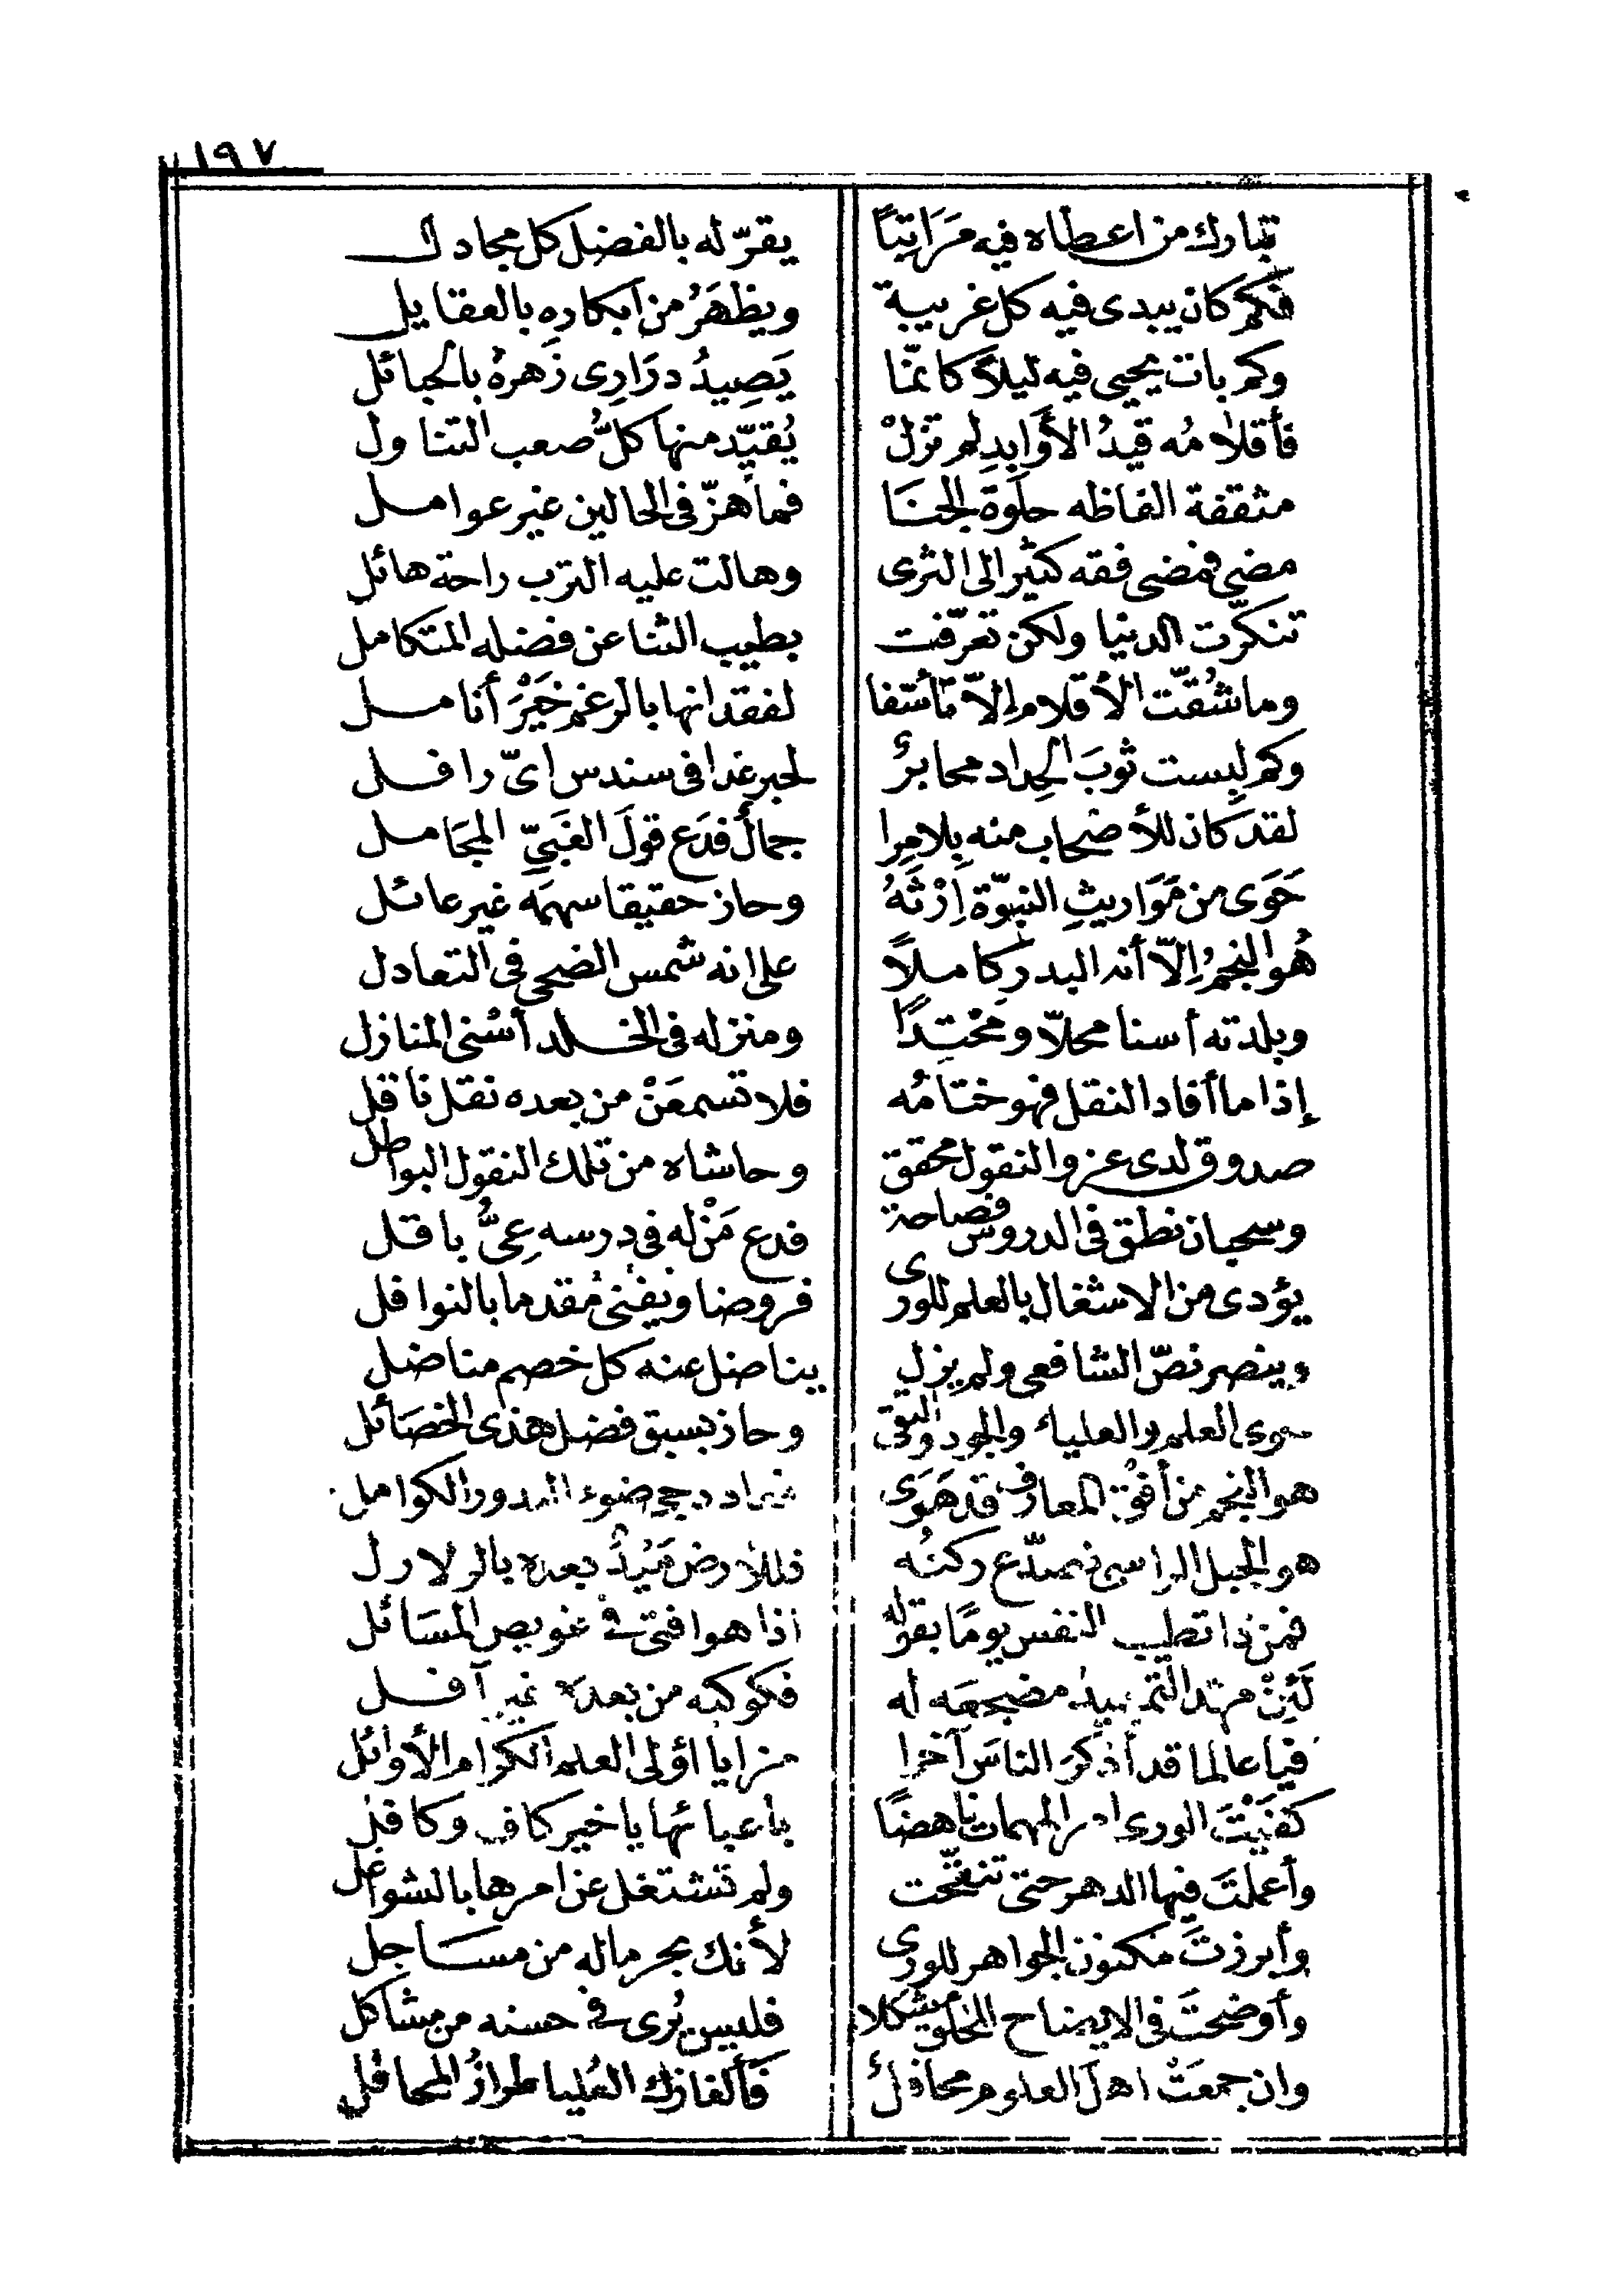 ١٩٧
تبارك من اعطاه فيه مَرَاتِبًا يقرّ له بالفضل كل مجادل
فكم كان يبدى فيه كل غريبة ويظهَرُ من أبكارِه بالعقايل
وكم بات يحيى فيه ليلاً كانمّا يَصِيدُ دَرَارِى زَهرهُ بالحبائل
فأقلامُه قيدُ الأَوَابِدِ لم تزلْ يُقيّد منها كلَّ صعب التناول
مثقفة الفاظه حلوة الجنَا فما هزّ فى الحالين غير عوامل
مضى فمضى فقه كثير الى الثرى وهالت عليه الترب راحة هائل
تنكرّت الدنيا ولكن تعرّفت بطيب الثنا عن فضله المتكامل
وما شُقّت الأقلام إلاّ تأسّفا لفقدانها بالرغم خَيْرَ أنامل
وكم لبست ثوبَ الحِداد محابرٌ لحبر غدا فى سندس اىّ رافل
لقد كان للأصحاب منه بِلا مِرا جمالٌ فدَع قولَ الغَبيِّ المجَامل
حَوَى من مَوَاريثِ النبوّة اِرْثَهُ وحاز حقيقا سهمَه غير عائل
هُو النجمُ إلاّ أنه البدر كاملاً على انه شمس الضحى فى التعادل
وبلدته أسنا محلاّ ومَحْتِدًا ومنزله فى الخلد أسْنى المنازل
إذا ما أفاد النقل فهو ختامُه فلا تسمعَنْ من بعده نقل ناقل
صدوق لدى عزو النقول محقق وحاشاه من تلك النقول البواطل
وسحبان نطق فى الدروس فصاحة فدع مَنْ له فى درسه عِىُّ باقل
يؤدى من الاشغال بالعلم للورى فروضا ويفنى مُقدما بالنوافل
وينصر نصّ الشافعى ولم يزل يناضل عنه كل خصم مناضل
حوى العلم والعلياء والجود والتقى وحاز بسبق فضل هذى الخصَائل
هو النجم من أفق المعارف قد هَوَى دجى ضوء البدور الكوامل
هو الجبل الراسى تصدّع ركنُه فللأرض مَيْدٌ بعده بالزلازل
فمن ذا تطيب النفس يومًا بقوله اذا هو افتى فى عويص المسَائل
لَئِنْ مهّد التمهيد مضجعه له فكوكبه من بعده غير آفل
فيا عالما قد أذكَرَ الناسَ آخرا مزايا اؤلى العلم الكرام الأوائل
كفَيْتَ الورى امر المهمات ناهضًا بأعبائها يا خير كاف وكافل
وأعملتَ فيها الدهر حتى تنقّحت ولم تشتغل عن امرها بالشواغل
وأبرزتَ مكنون الجواهر للورى لأنك بحر ماله من مسَاجل
وأوضحتَ فى الايضاح للخلق مشكلا فليس يُرى فى حسنه من مشاكل
وان جمعَتْ اهلَ العلوم محافلٌ فألغازك العُليا طرازُ المحافل